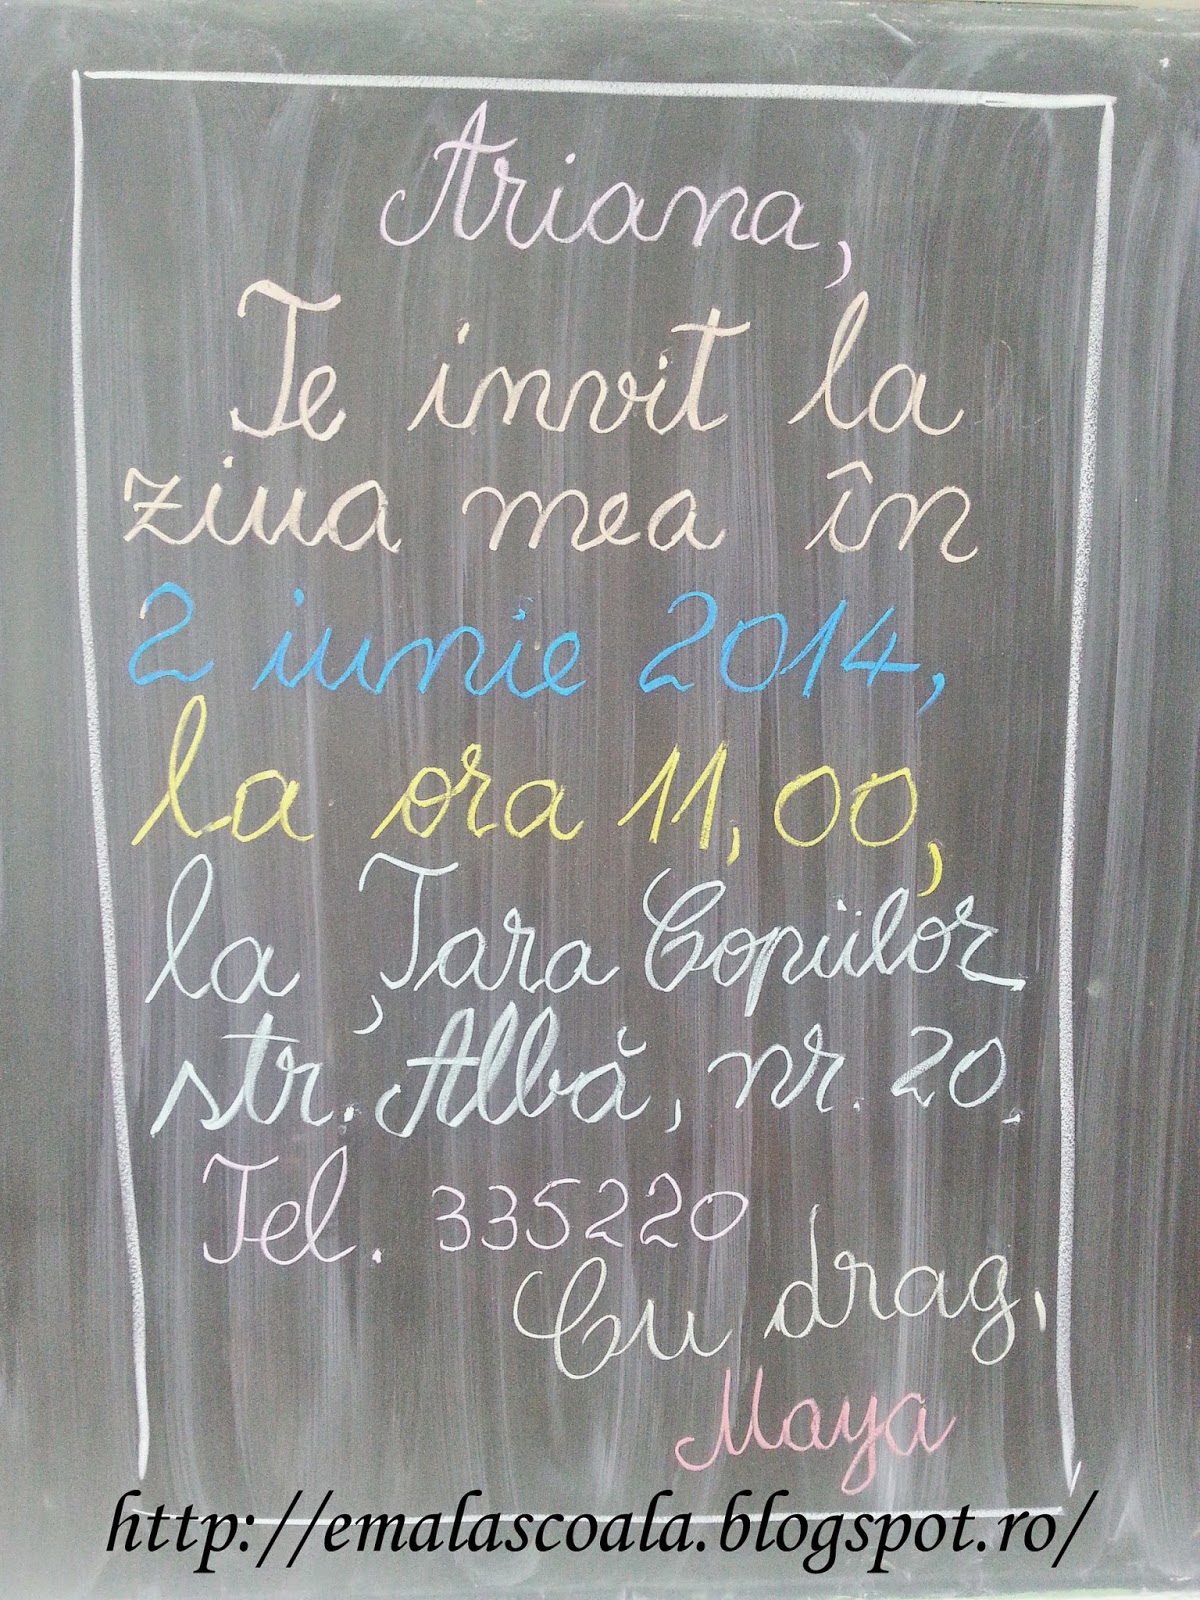 Ariana,
Te invit la
ziua mea în
2 iunie 2014,
la ora 11,00,
la Țara Copiilor
str. Albă, nr. 20.
Tel. 335220
Cu drag,
Maya
http://emalascoala.blogspot.ro/